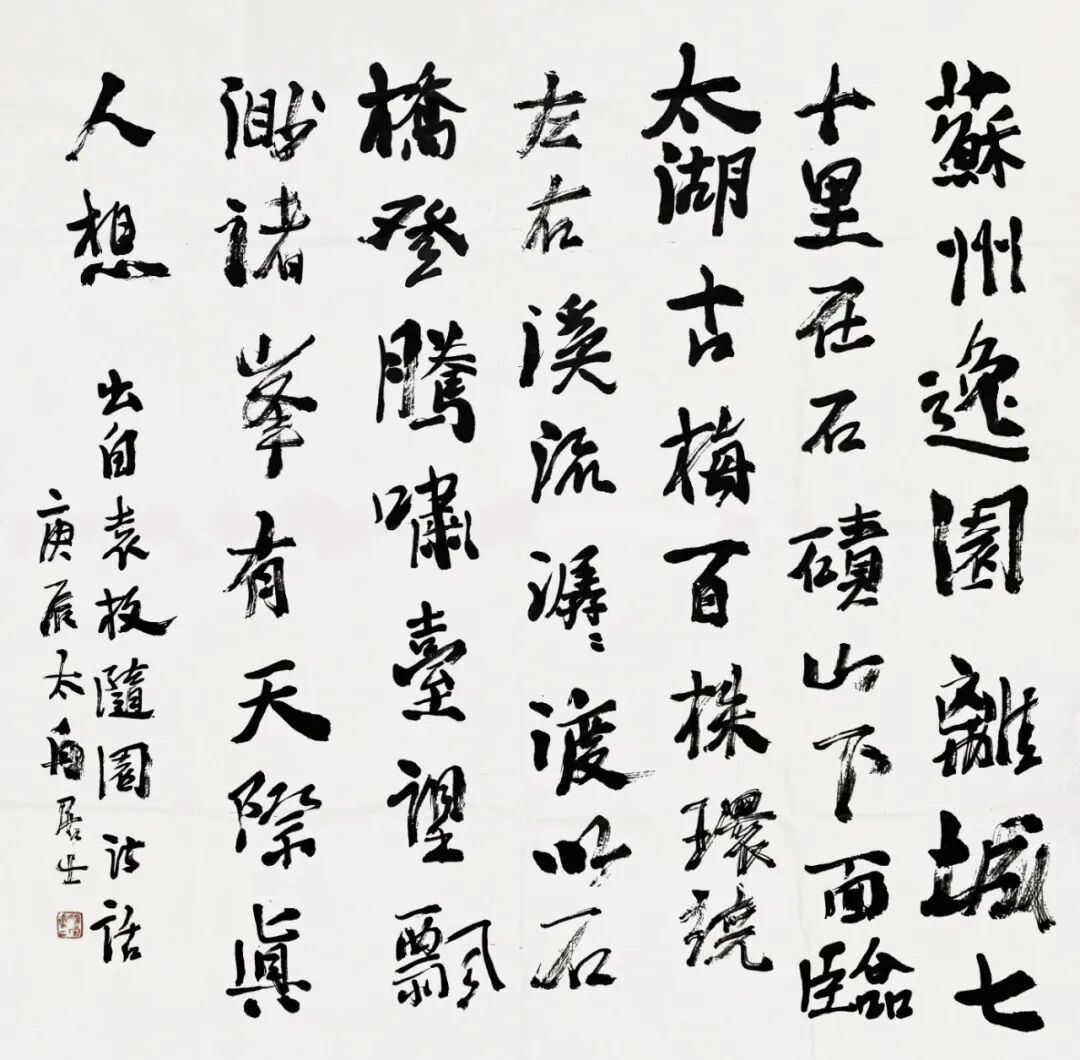 蘇州逸園離城七
十里在石磧山下面臨
太湖古梅百株環繞
左右溪流潺〻渡以石
橋登騰嘯臺望飄
渺諸峯有天際眞
人想
出自袁枚隨園詩話
庚辰太舟居士